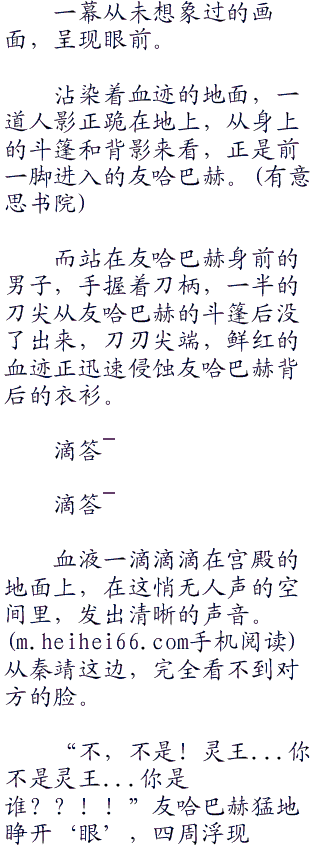 一幕从未想象过的画
面，呈现眼前。
沾染着血迹的地面，一
道人影正跪在地上，从身上
的斗篷和背影来看，正是前
一脚进入的友哈巴赫。(有意
思书院)
而站在友哈巴赫身前的
男子，手握着刀柄，一半的
刀尖从友哈巴赫的斗篷后没
了出来，刀刃尖端，鲜红的
血迹正迅速侵蚀友哈巴赫背
后的衣衫。
滴答¯
滴答¯
血液一滴滴滴在宫殿的
地面上，在这悄无人声的空
间里，发出清晰的声音。
(m.heihei66.com手机阅读)
从秦靖这边，完全看不到对
方的脸。
“不，不是！灵王...你
不是灵王...你是
谁？？！！”友哈巴赫猛地
睁开‘眼’，四周浮现